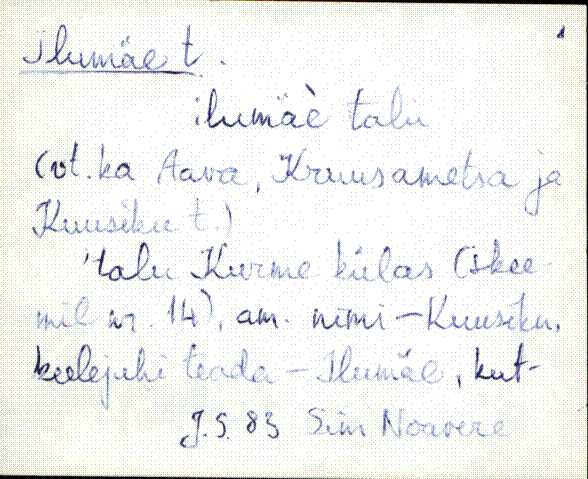 1
Ilumäe t.
ilumäè talu
(vt. ka Aava, Kruusametsa ja
Kuusiku t.)
'talu Kurme külas (skee-
mil nr. 14), am. nimi - Kuusiku,
keelejuhi teada - Ilumäe, kut-
J.S. 83 Siim Noavere